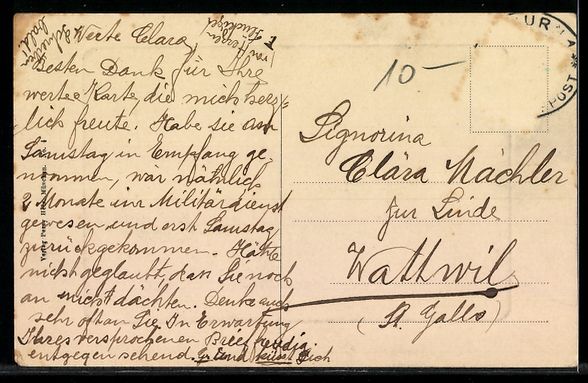 Werte Clara,
Besten Dank für Ihre
werte Karte, die mich herz-
lich freute. Habe sie am
Samstag in Empfang ge-
nommen, war nähmlich
2 Monate im Militärdienst
gewesen und erst Samstag
zurückgekommen. Hätte
nicht geglaubt, dass Sie noch
an mich dächten. Denke auch
sehr oft an Sie. In Erwartung
Ihres versprochenen Briefes
entgegen sehend.
von Herzen
10 —
Signorina
Clara Mächler
zur Linde
Wattwil
(St. Gallo)
POST